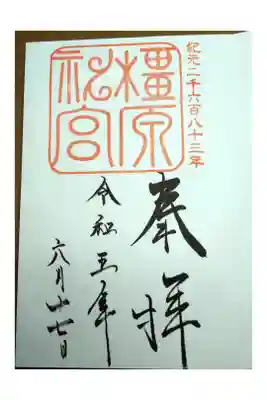 紀元二千六百八十三年
橿原
神宮
奉拝
令和五年
六月十七日